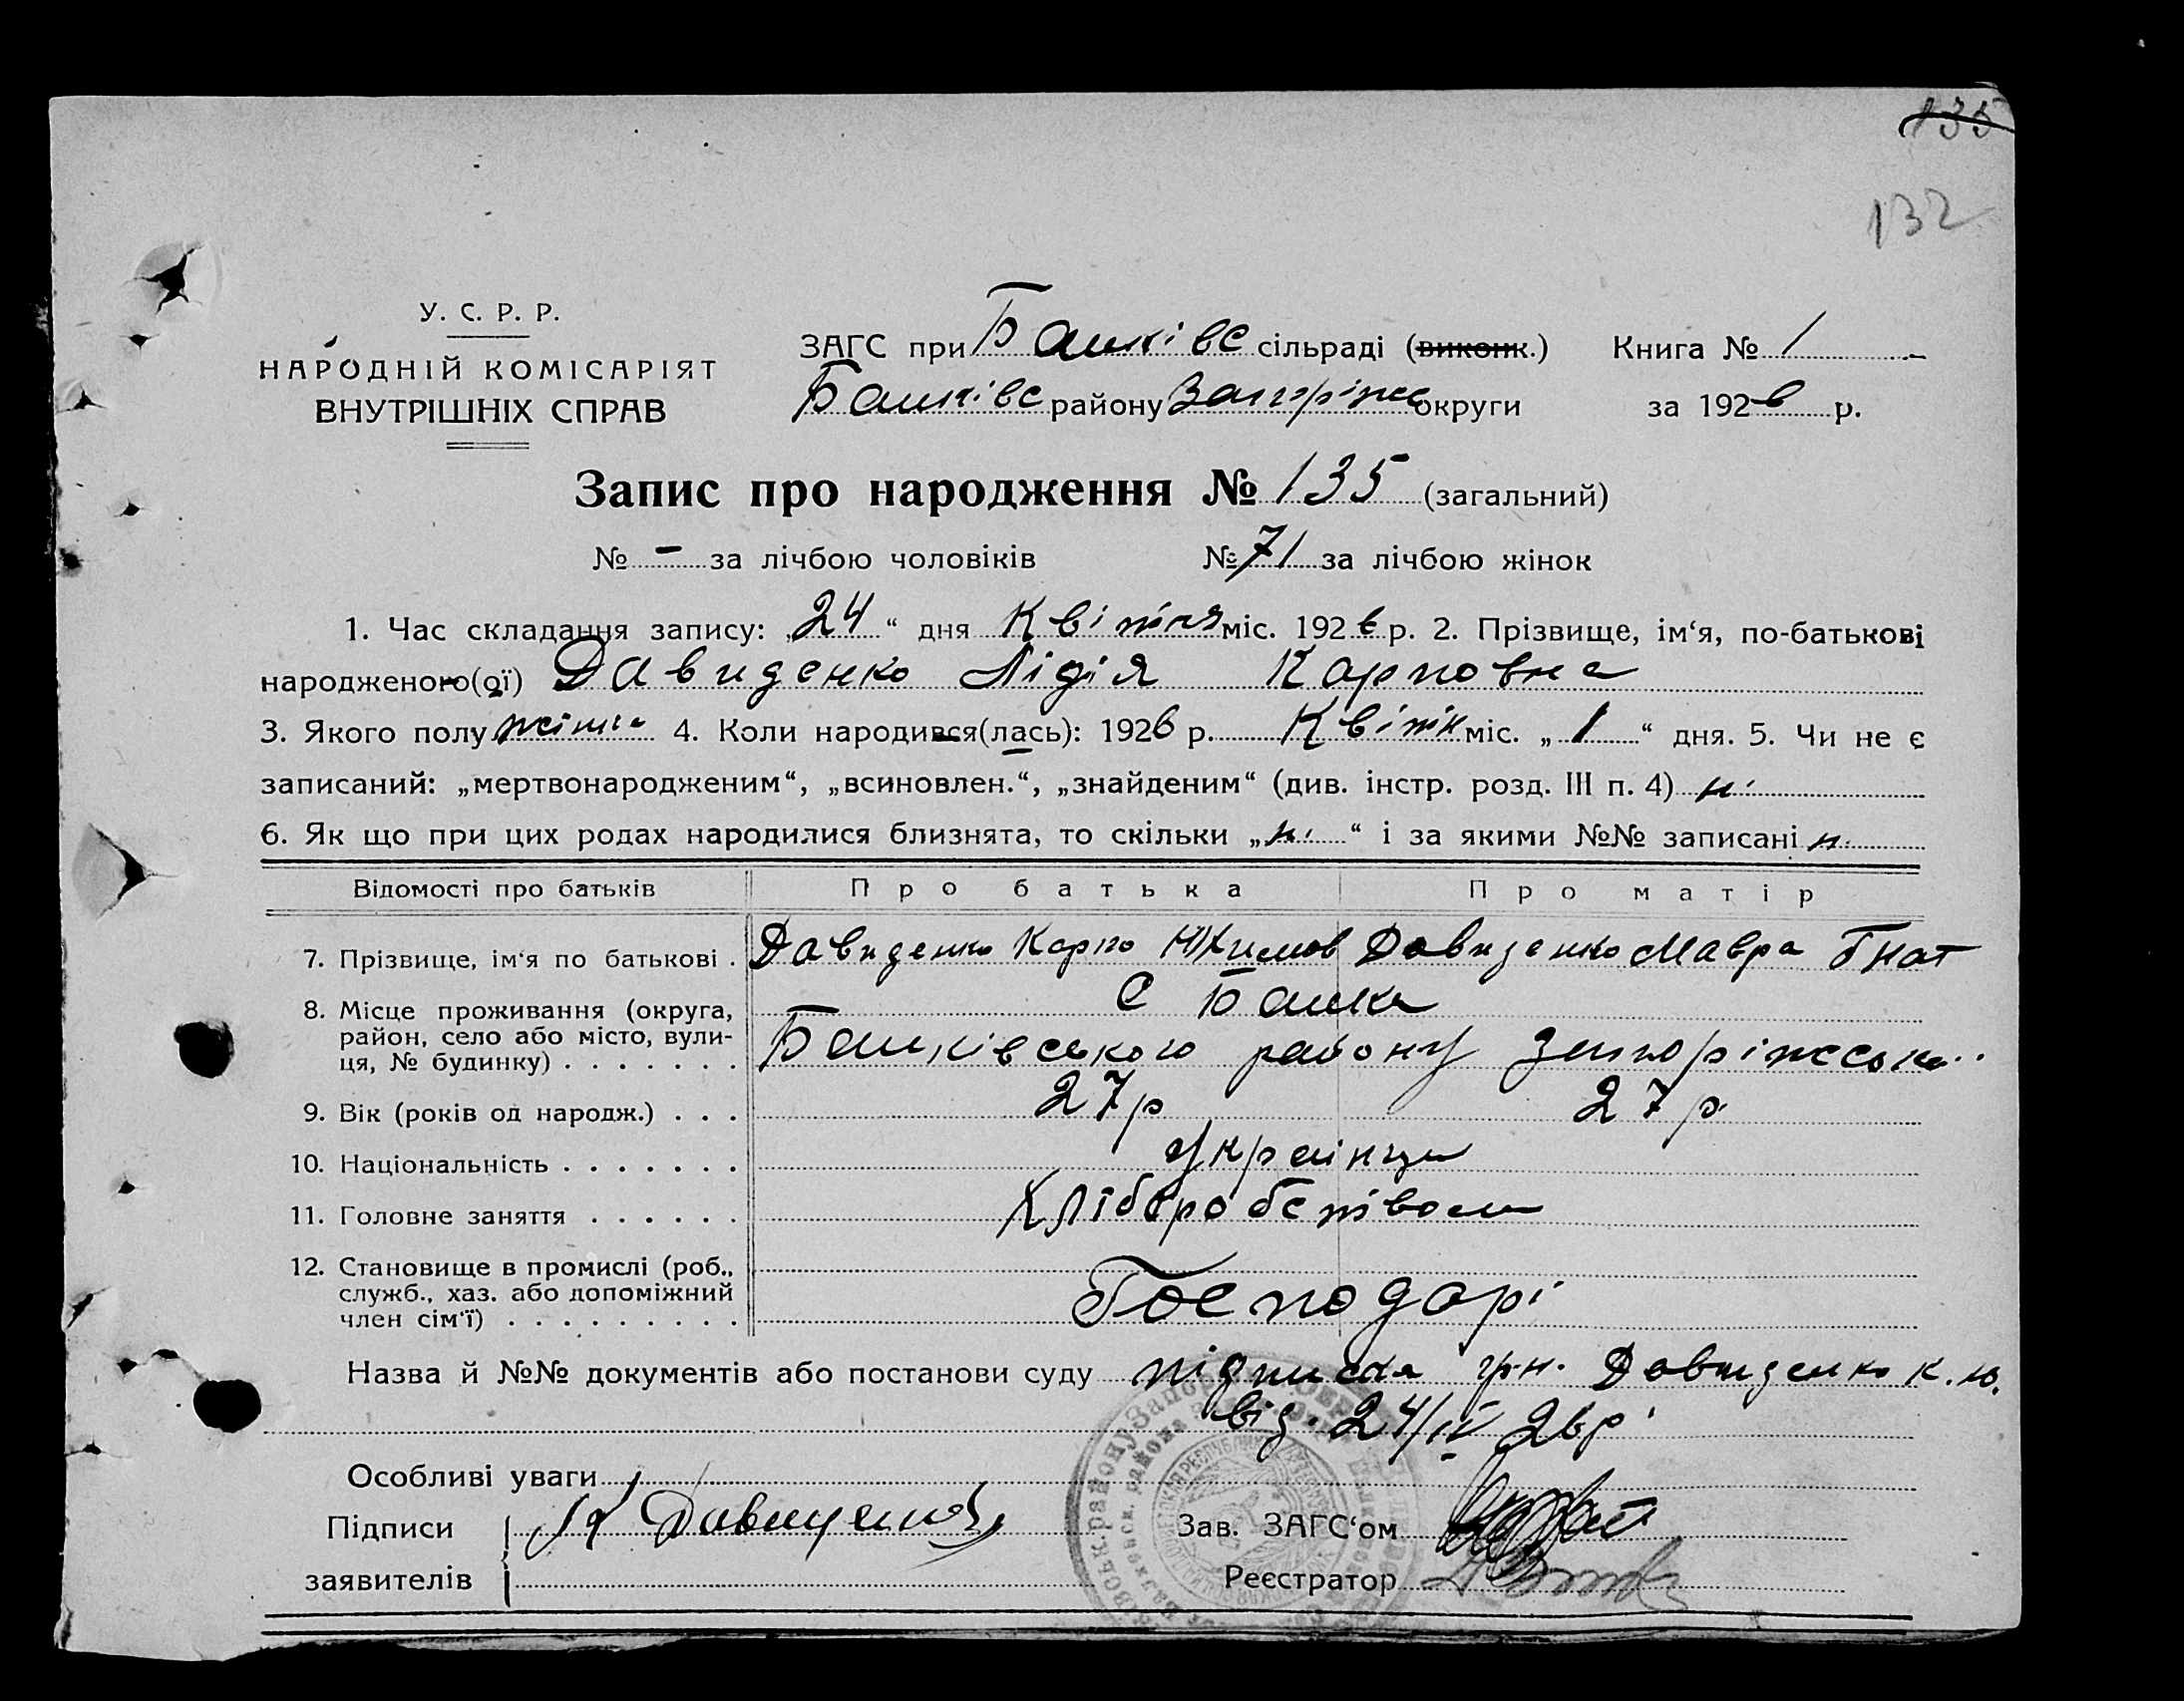 135
132
У. С. Р. Р.
НАРОДНІЙ КОМІСАРІЯТ
ВНУТРІШНІХ СПРАВ
ЗАГС при Балківс сільраді (виконк.) Книга № 1
Балківс району Запоріжс округи за 1926 р.
Запис про народження № 135 (загальний)
№ - за лічбою чоловіків № 71 за лічбою жінок
1. Час складання запису: „24“ дня Квітня міс. 1926 р. 2. Прізвище, ім‘я, по-батькові
народженого(ої) Давиденко Лідія Карповна
3. Якого полу жіноч 4. Коли народився(лась): 1926 р. Квітн міс. „1“ дня. 5. Чи не є
записаний: „мертвонародженим“, „всиновлен.“, „знайденим“ (див. інстр. розд. III п. 4) ні
6. Як що при цих родах народилися близнята, то скільки „ні“ і за якими №№ записані н.
Відомості про батьків Про батька Про матір
7. Прізвище, ім‘я по батькові . Давиденко Карпо Юхимов Давиденко Мавра Гнат
8. Місце проживання (округа, район, село або місто, вулиця, № будинку) . . . . . . . С Балка
Балківського району Запоріжськ..
9. Вік (років од народж.) . . . 27р 27р
10. Національність . . . . . . . Українци
11. Головне заняття . . . . . . Хліборобством
12. Становище в промислі (роб., служб., хаз. або допоміжний член сім‘ї) . . . . . . . . . Господарі
Назва й №№ документів або постанови суду підписка гр-н. Давиденко К. Ю.
від. 24/IV 26р
Особливі уваги
Підписи заявителів Давиденко
Зав. ЗАГС‘ом
Реєстратор